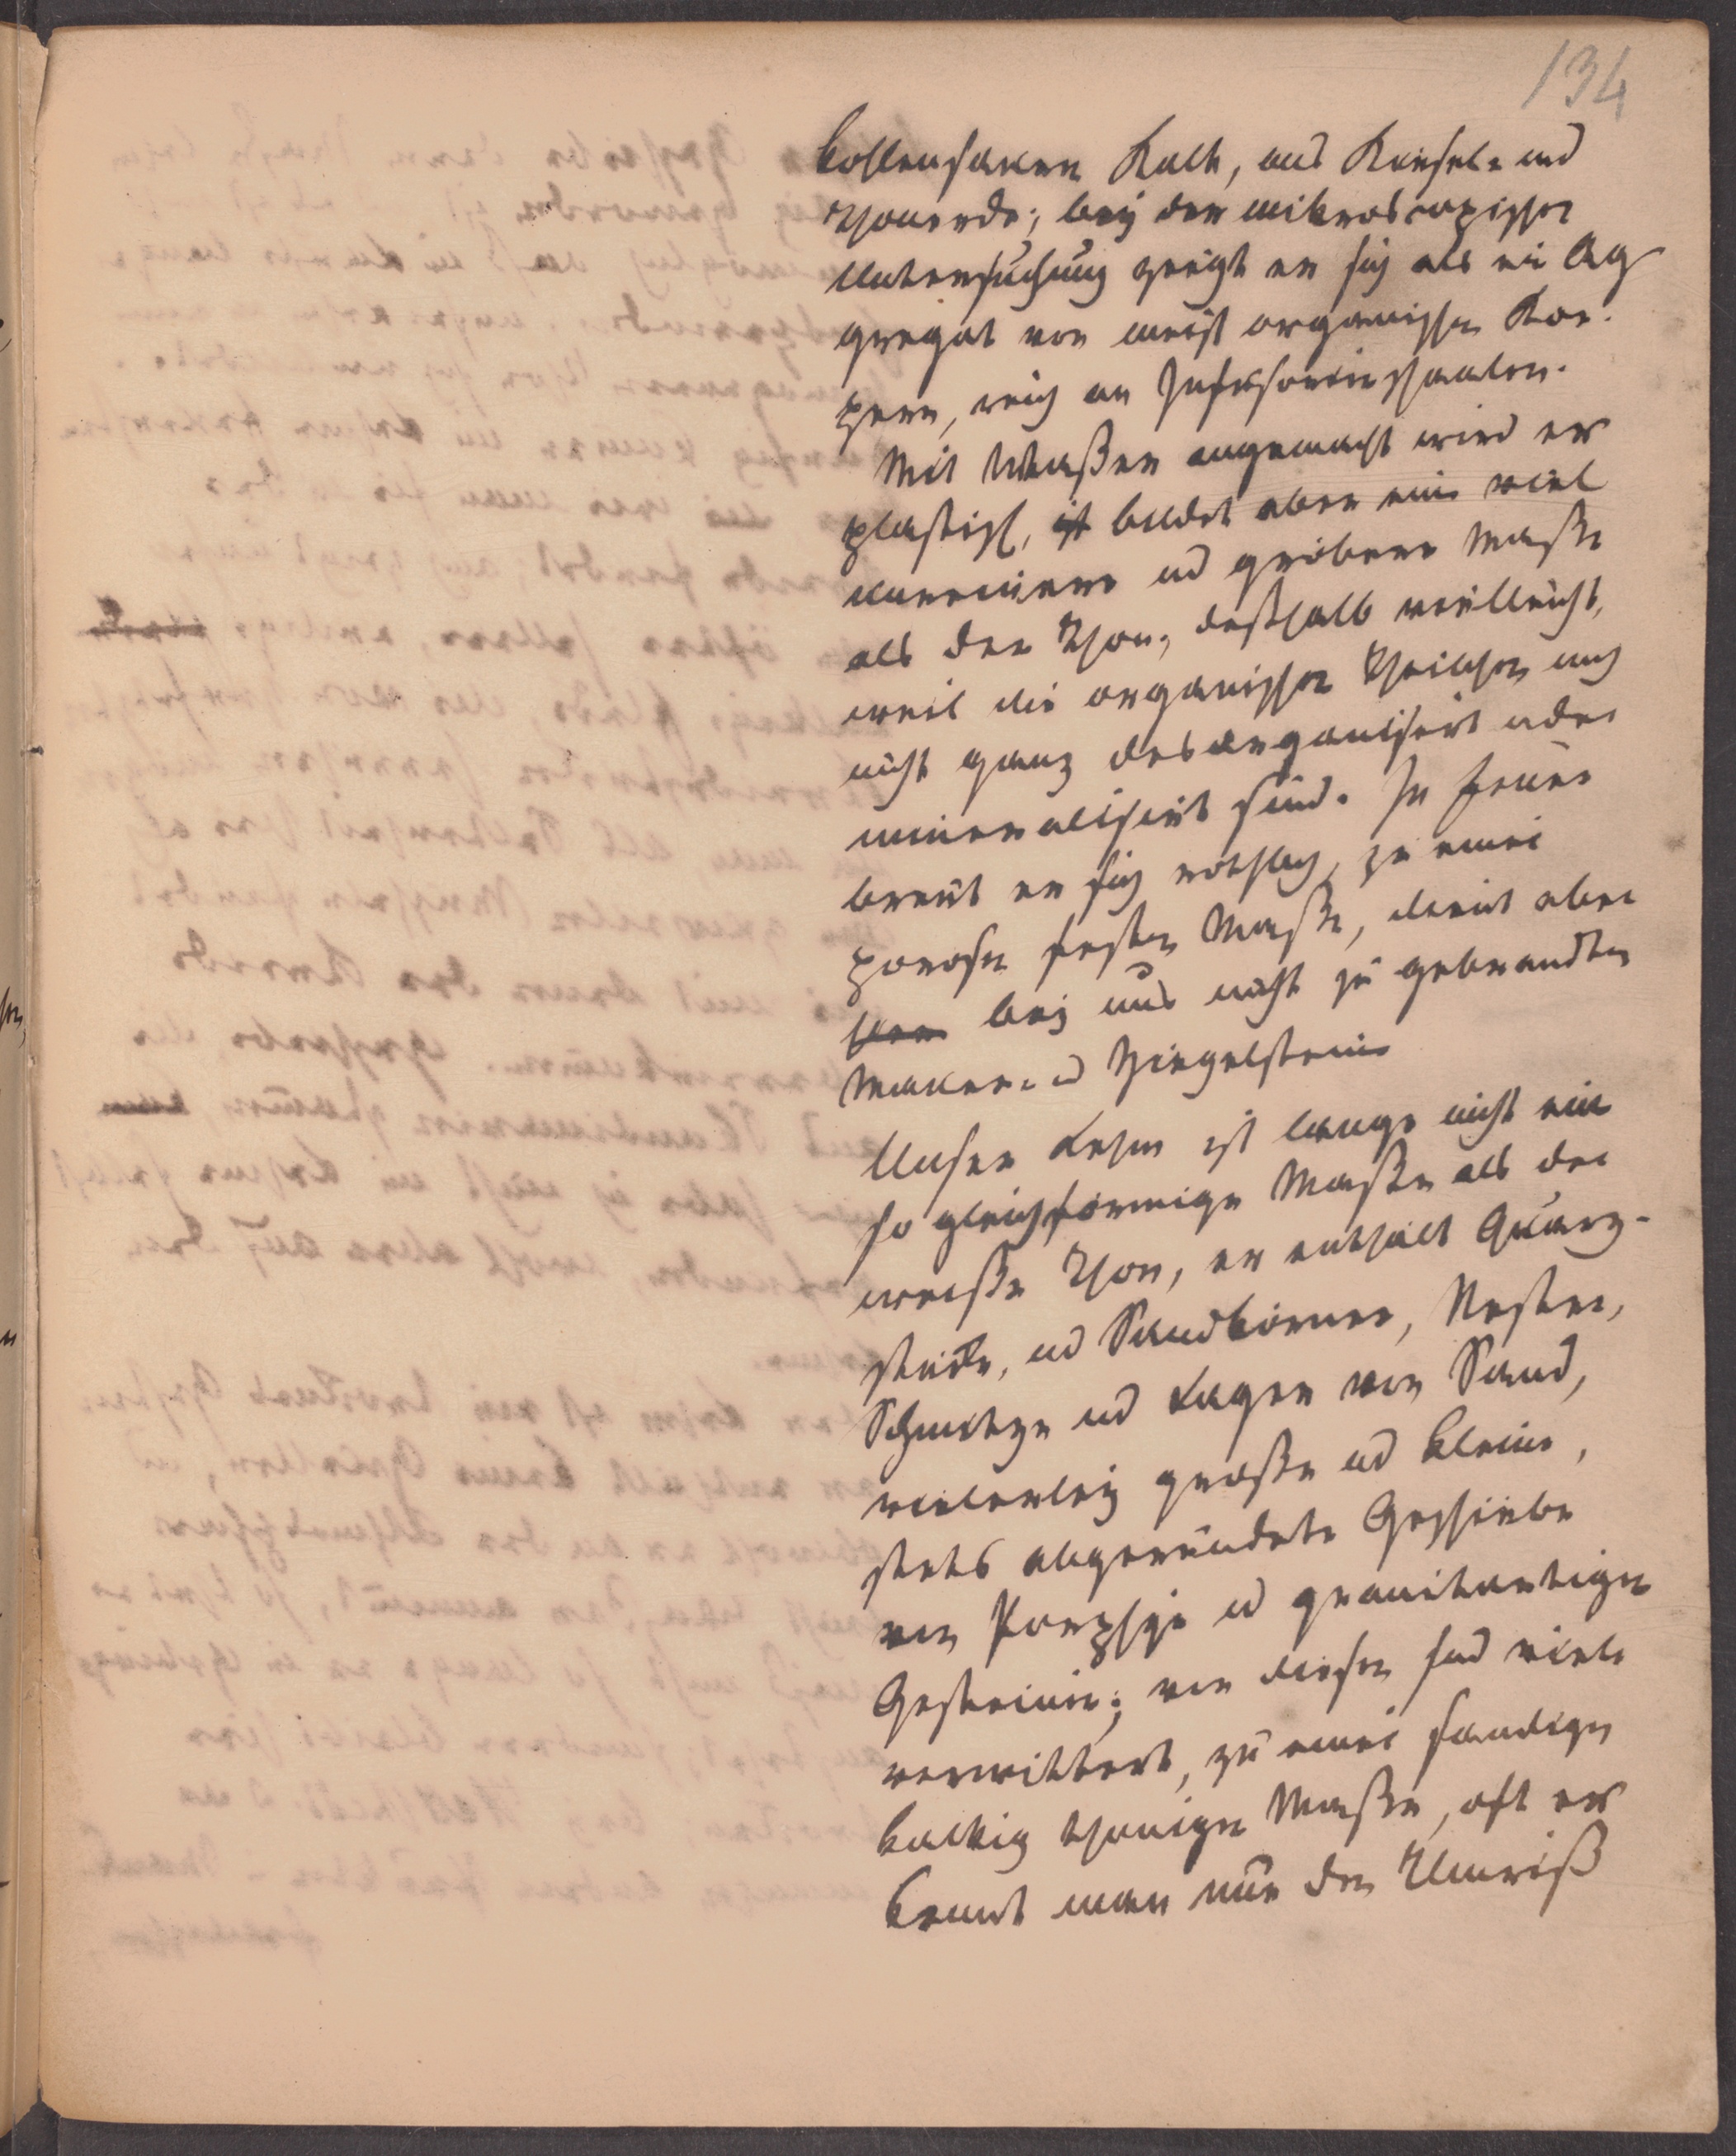 134
kohlensauren Kalk, aus Kiesel- und
Thonerde; bey der mikroskopischen
Untersuchung zeigt er sich als ein Ag
gregat von meist organischen Kör-
pern, reich an Infusorienschaalen.
Mit Waßer angemacht wird er
plastisch, ist bildet aber eine viel
unreinere und gröbere Maße
als der Thon; deßhalb vielleicht,
weil die organischen Theilchen noch
nicht ganz desorganisirt oder
mineralisirt sind. In Feuer
brent er sich rothlich, zu einer
porosen festen Maße, dient aber
bey uns nicht zu gebrandten
Mauer- u Ziegelsteine
Unser Lehm ist lange nicht eine
so gleichförmige Maße als der
weiße Thon, er enthält Quarz-
stücke, und Sandkörner, Nester,
Schmitze und Lagen von Sand,
vielerley große und kleine,
stets abgerundete Geschiebe
von Porphyr u granitartigen
Gesteine; von diesen sind viele
verwittert, zu einer sandigen
kalkig thonigen Maße, oft er
kennt man nur den Umriß